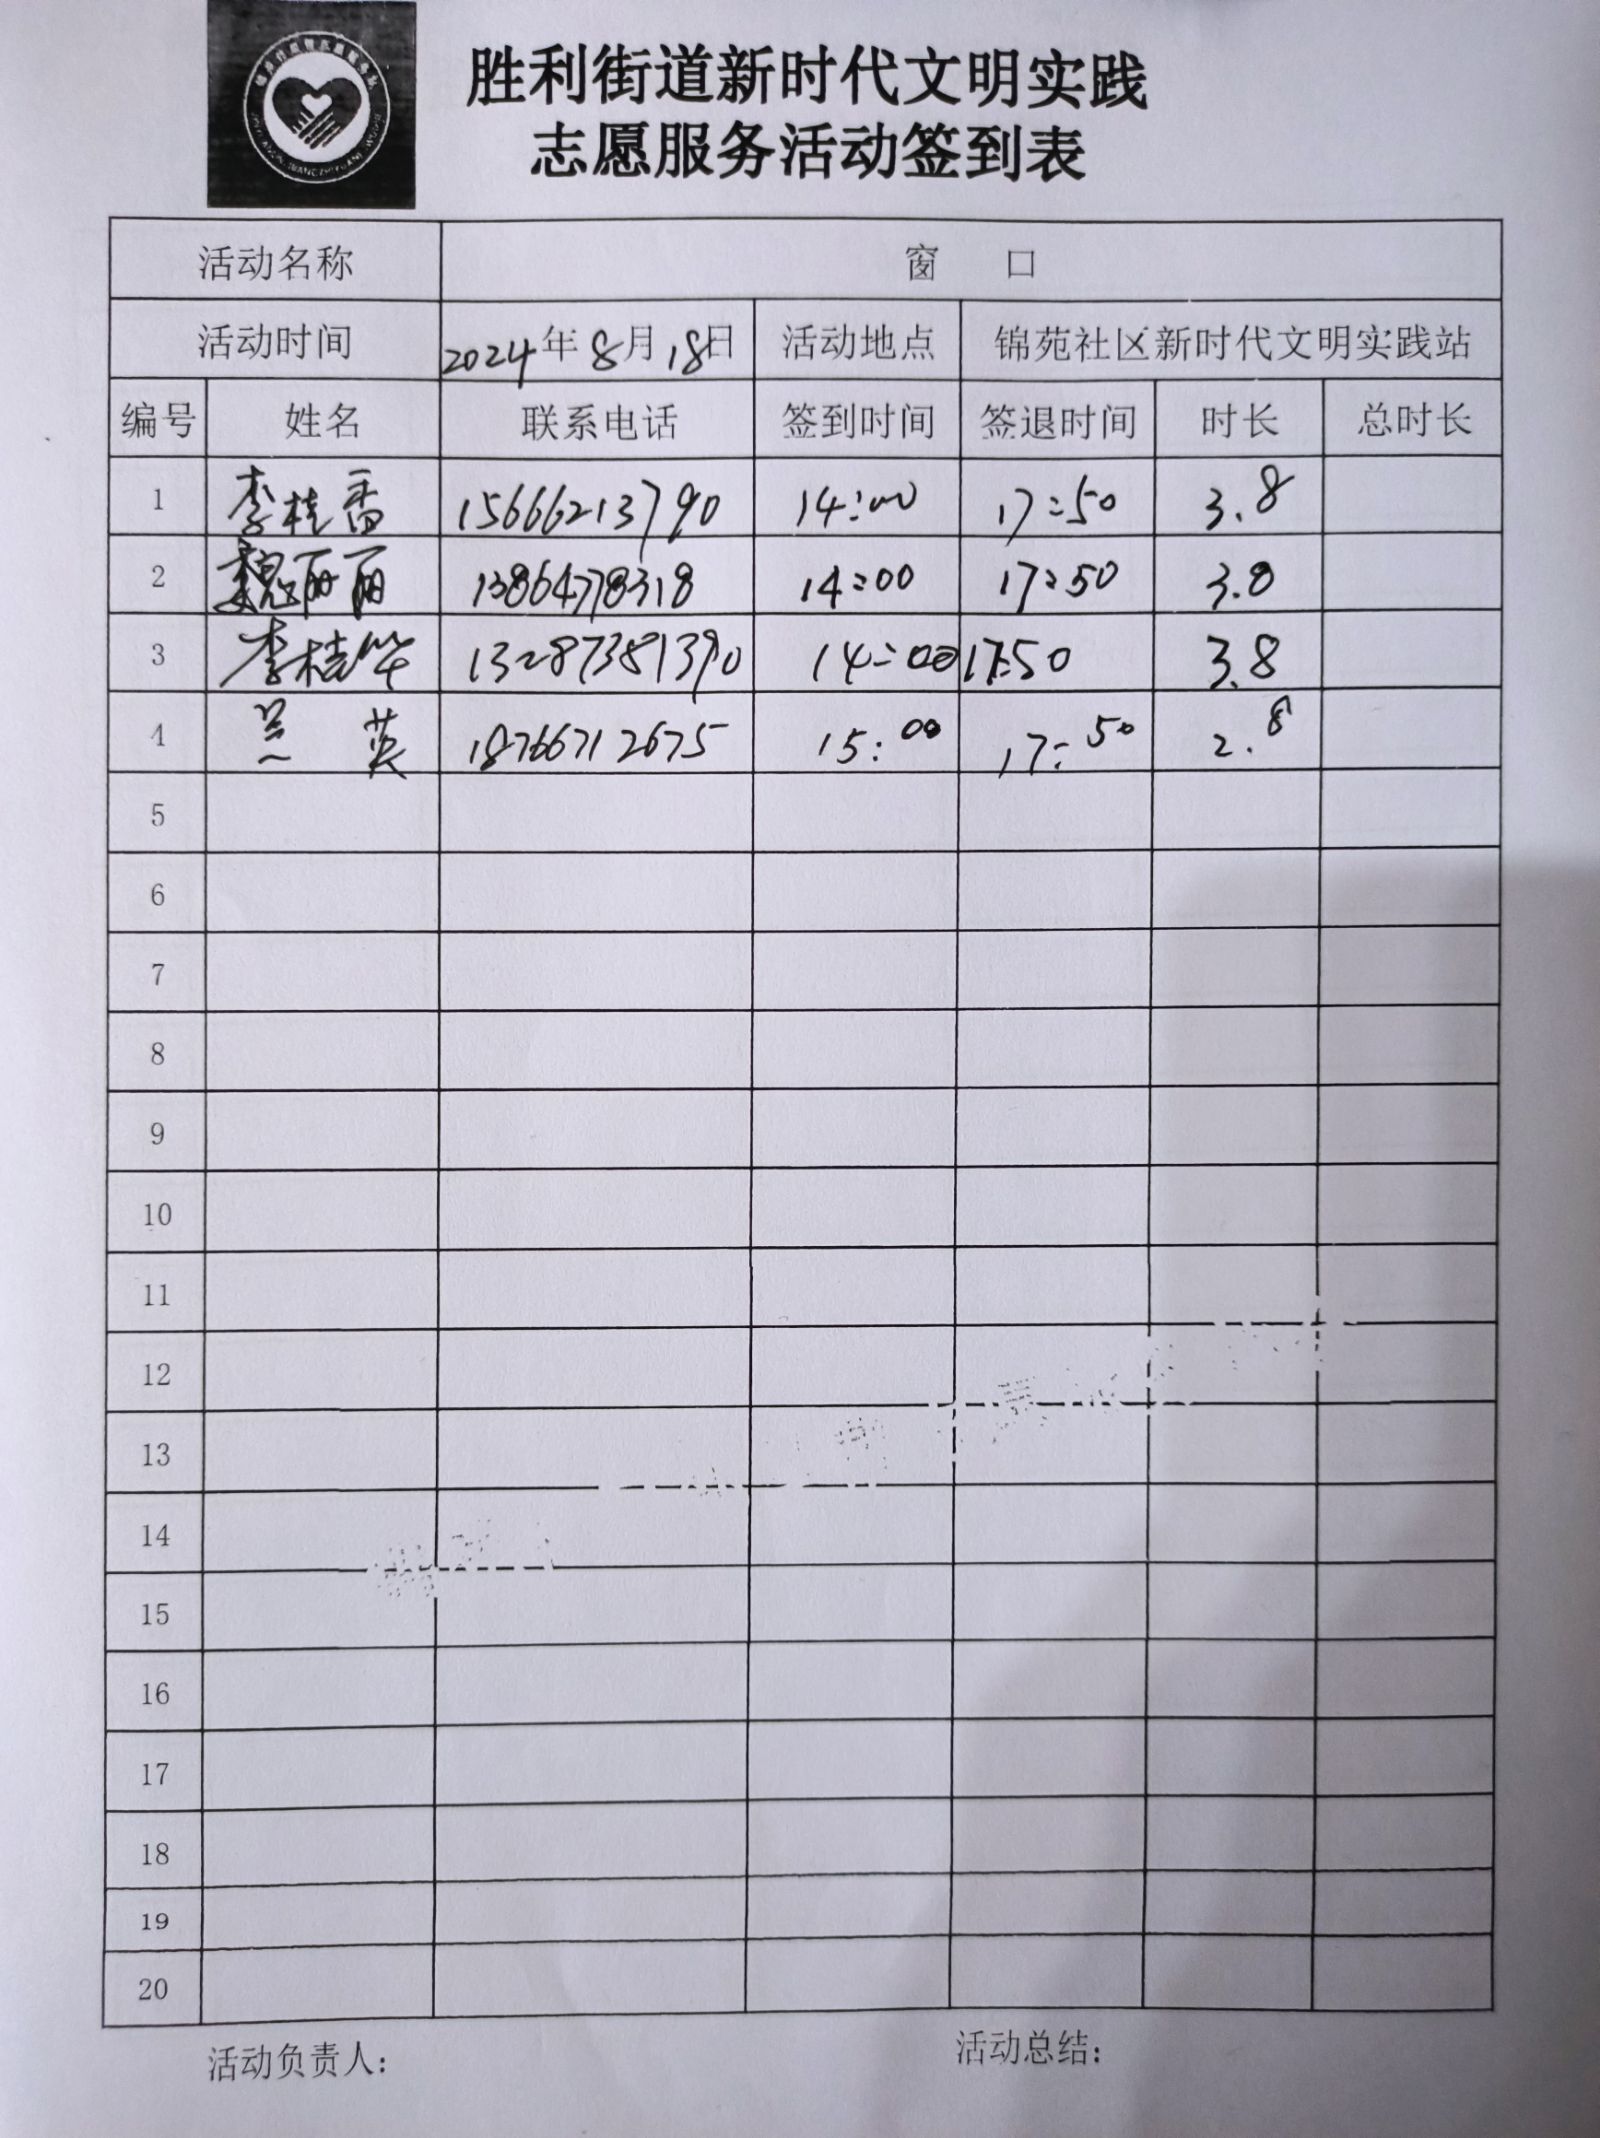 胜利街道新时代文明实践
志愿服务活动签到表
活动名称 窗 口
活动时间 2024年8月18日 活动地点 锦苑社区新时代文明实践站
编号 姓名 联系电话 签到时间 签退时间 时长 总时长
1 李桂香 15666213790 14:00 17:50 3.8
2 魏丽丽 13864778318 14:00 17:50 3.8
3 李桂华 13287381390 14:00 17:50 3.8
4 兰英 18766712675 15:00 17:50 2.8
5
6
7
8
9
10
11
12
13
14
15
16
17
18
19
20
活动负责人: 活动总结: